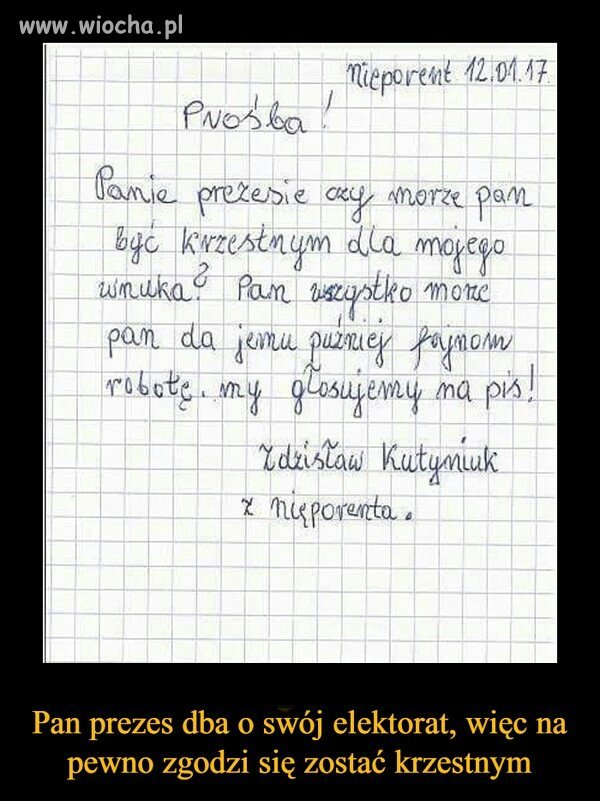 www.wiocha.pl
nieporent 12.01.17.
Prośba!
Panie prezesie czy morze pan
być krzestnym dla mojego
wnuka? Pan wszystko morze
pan da jemu puźniej fajnom
robotę. my głosujemy na pis!
Zdzisław Kutyniuk
z nieporenta.
Pan prezes dba o swój elektorat, więc na
pewno zgodzi się zostać krzestnym